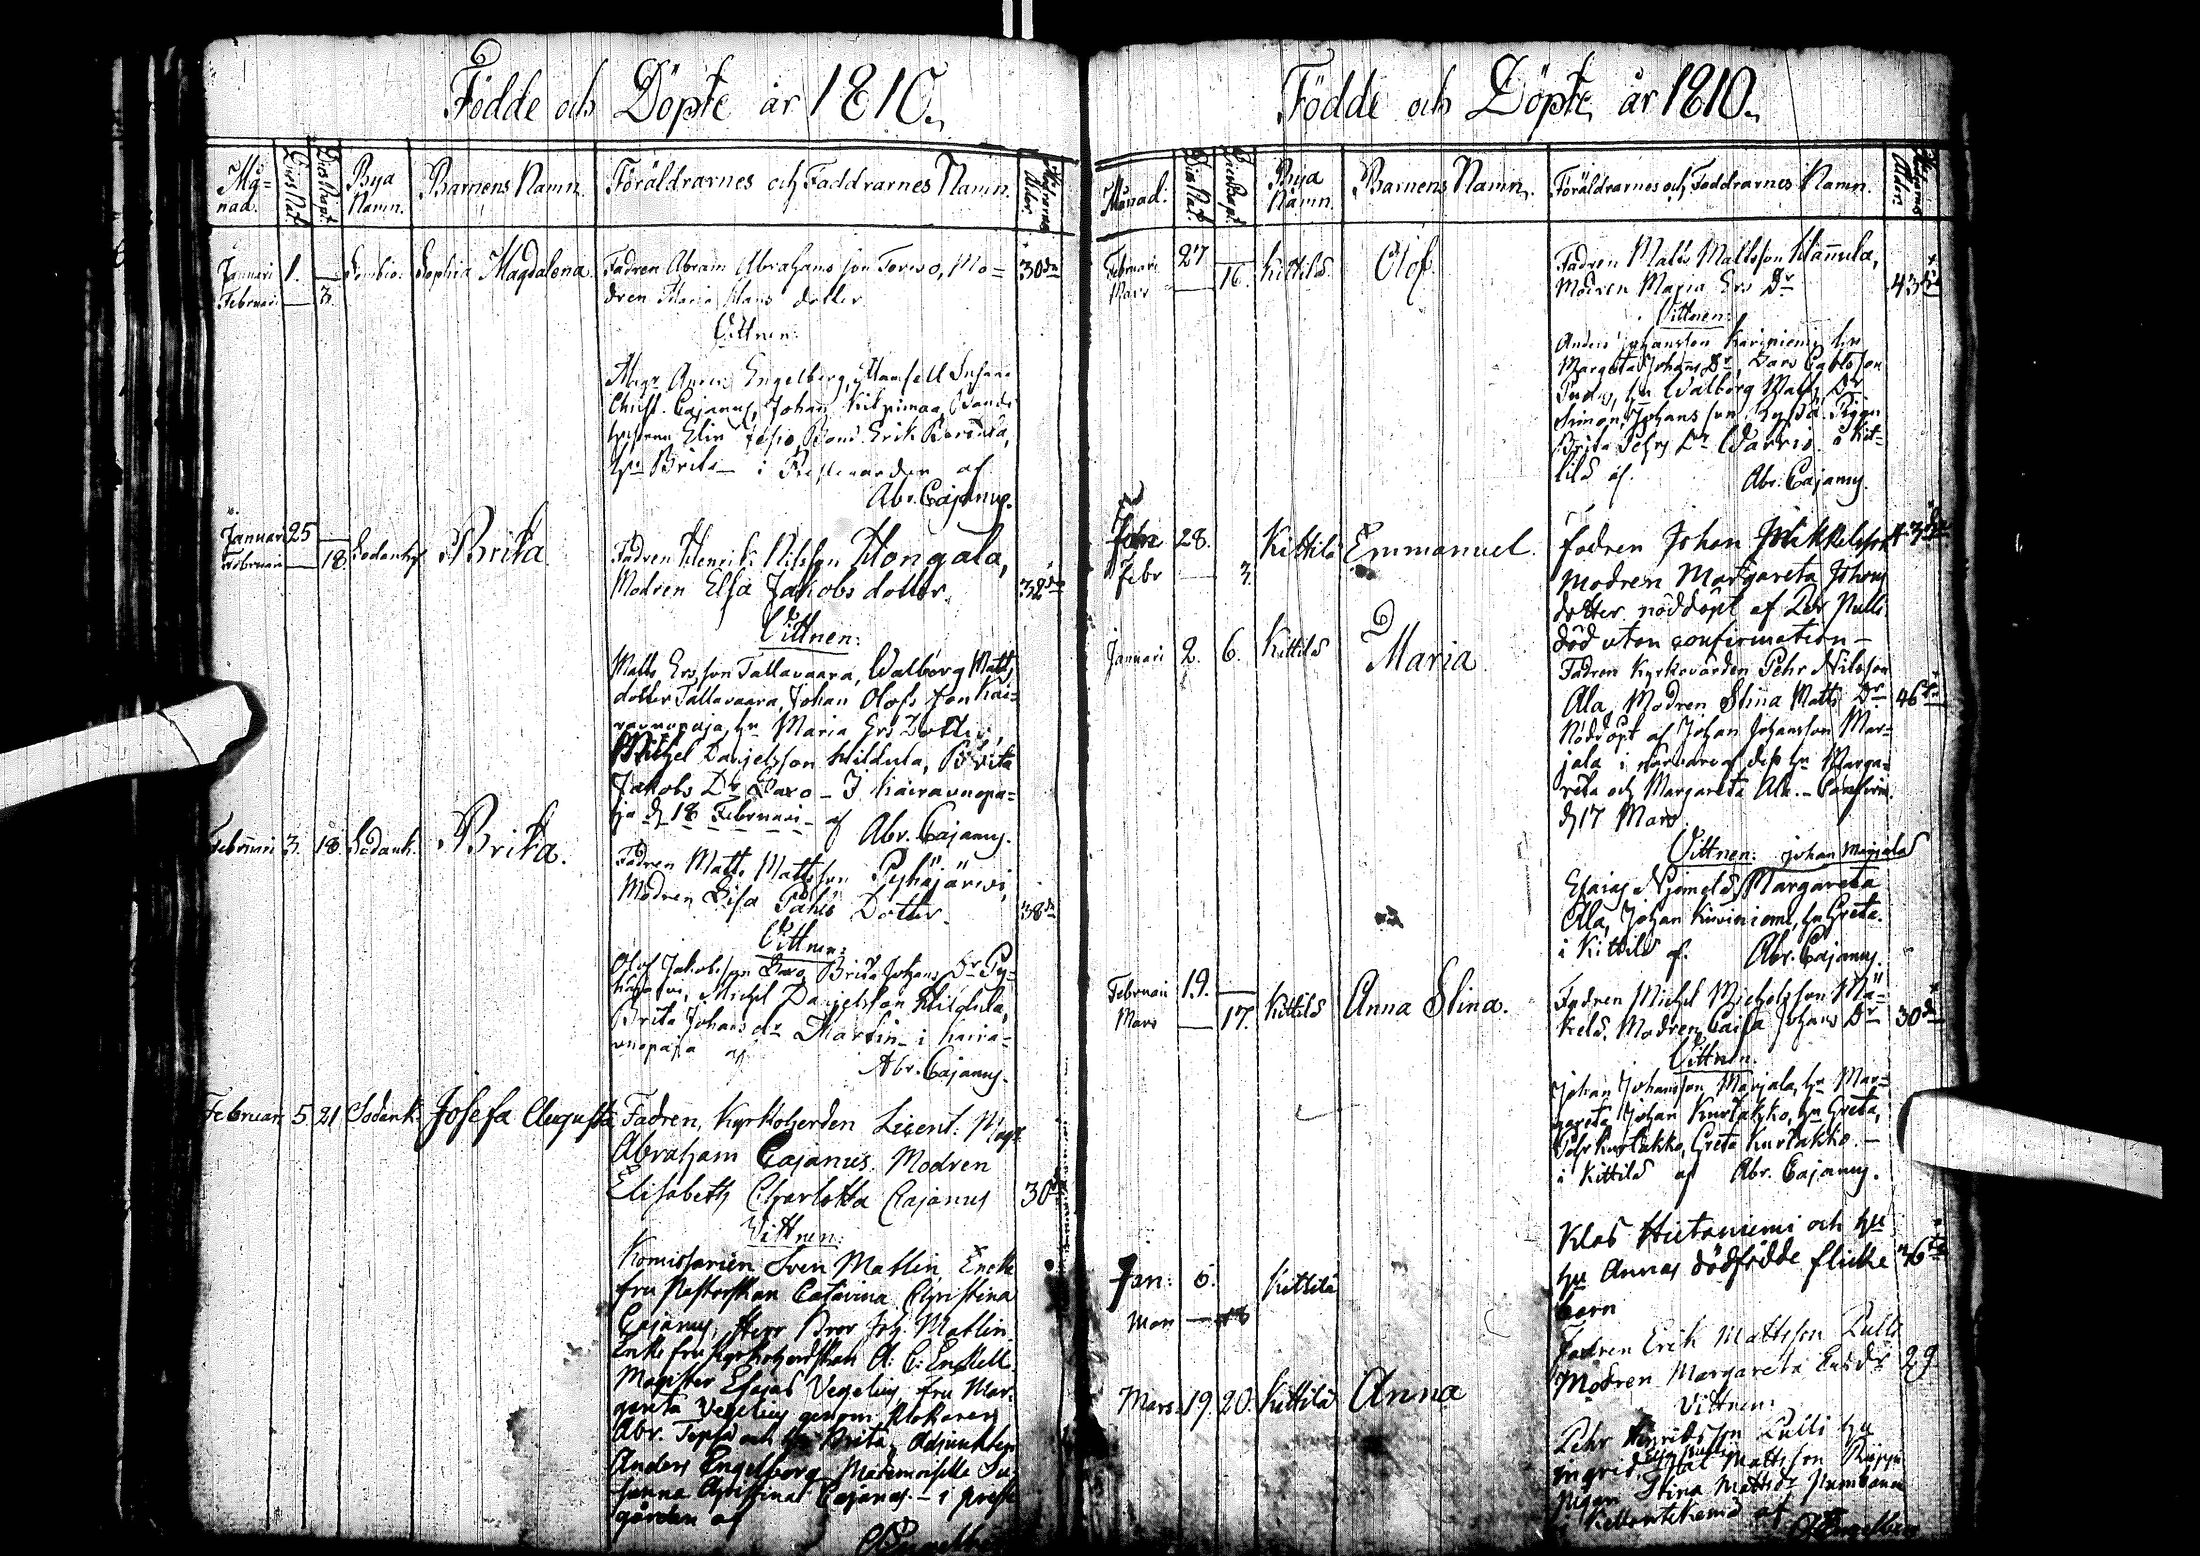 Födde och Döpte år 1810.
Må=
nad.
Dies Nat.
Dies Bapt.
Bya
Namn.
Barnens Namn.
Föräldrarnes och Faddrarnes Namn.
Ålder.
Januari 1. Sophia Magdalena.
Februari 3.
Fadren Abram Abrahams son Mo=
dren Maria Hans dotter
30
Vittnen:
Magr Anders Engelberg, Mamsell Susana
Christ. Cajanus, Johan Kilpimaa, Bonde
hustrun Elin Bond. Erik
hu Brita i af
Abr. Cajanus.
Januari 25
Februari 18. Brita
Fadren Henrik Nilsson Hongala,
Modren Elsa Jakobs dotter.
32
Vittnen:
Matts Ersson Tallavaara, Walborg Matts
dotter Tallavaara, Johan Olofs son Kai=
ravuopaja, hu Maria Ers Dotter,
Michel Danjelsson Hildula, Brita
Jakobs Dr - I Kairavuopa=
ja d 18 Februari - af Abr. Cajanus.
Februari 3. 18. Sodank. Brita.
Fadren Matts Mattsson Pyhäjärvi,
Modren Lisa Påhls Dotter.
38
Vittnen:
Olof Jakobsson Brita Johans Dr Py=
Michel Danjelsson Hildula,
Brita Johans dr Martin - i Kaira=
vuopaja af
Abr. Cajanus.
Februari 5. 21. Sodank. Josefa Augusta
Fadren, Kyrkoherden Licent. Magr
Abraham Cajanus. Modren
Elisabeth Charlotta Cajanus
30
Vittnen:
Komissarien Sven Matlin, Enke
fru Pastorskan Catarina Christina
Cajanus, Herr Bror Joh. Matlin
Enke fru Kyrkoherdskan A: C: Enckell
Magister Esajas Vegelius, fru Mar=
gareta Vegelius genom Klokaren
Abr. och hu Brita, Adjunkten
Anders Engelberg Mademoiselle Su=
sanna Christina Cajanus - i prest
gården af
Födde och Döpte, år 1810.
Månad.
Dies Nat.
Dies Bapt.
Bya
Namn.
Barnens Namn.
Föräldrarnes och Faddrarnes Namn.
Ålder.
Februari 27 Kittilä Olof
Mars 16.
Fadren Matts Mattsson Hannula,
Modren Maria Ers Dr
43
Vittnen:
Anders Johansson Kiviniemi, hu
Margeta Johans Dr, Lars
hu Walborg Matts Dr
Simon Johans son Pigan
Brita Pehrs Dr i Kit=
tilä af. Abr. Cajanus.
28. Kittilä Emmanuel.
Febr 3.
fadren Johan Mikkelsson
Modren Margareta Johans
dotter nöddöpt af Per Pulli
död utan confirmation -
43
Januari 2. 6. Kittilä Maria
Fadren Kyrkovärden Pehr Nilsson
Ala, Modren Stina Matts Dr
46
Nöddöpt af Johan Johansson Mar=
jala i närvaro af dess hu Marga=
reta och Margareta Ala. - Confirm.
d 17 Mars
Vittnen: Johan Marjala
Esaias Margareta
Ala, Johan Kiviniemi, hu Greta.
i Kittilä af. Abr. Cajanus.
Februari 19. Kittilä Anna Stina.
Mars 17.
Fadren Michel Michelsson Mä=
kelä. Modren Caisa Johans Dr
30
Vittnen:
Johan Johansson Marjala, hu Mar=
gareta, Johan Kurtakko, hu Greta,
Pehr Kurtakko, Greta Kurtakko. -
i Kittilä af Abr. Cajanus.
Jan: 6. Kittilä
Mars 18
Klas Hietaniemi och hu
hu Annas dödfödde flicke
barn
36
Mars. 19. 20. Kittilä Anna
Fadren Erik Mattsson Pulli
Modren Margareta
29
Vittnen:
Pehr Henriksson Pulli hu
Ingrid, Mattsson
pigan Stina Mattsdr
i af